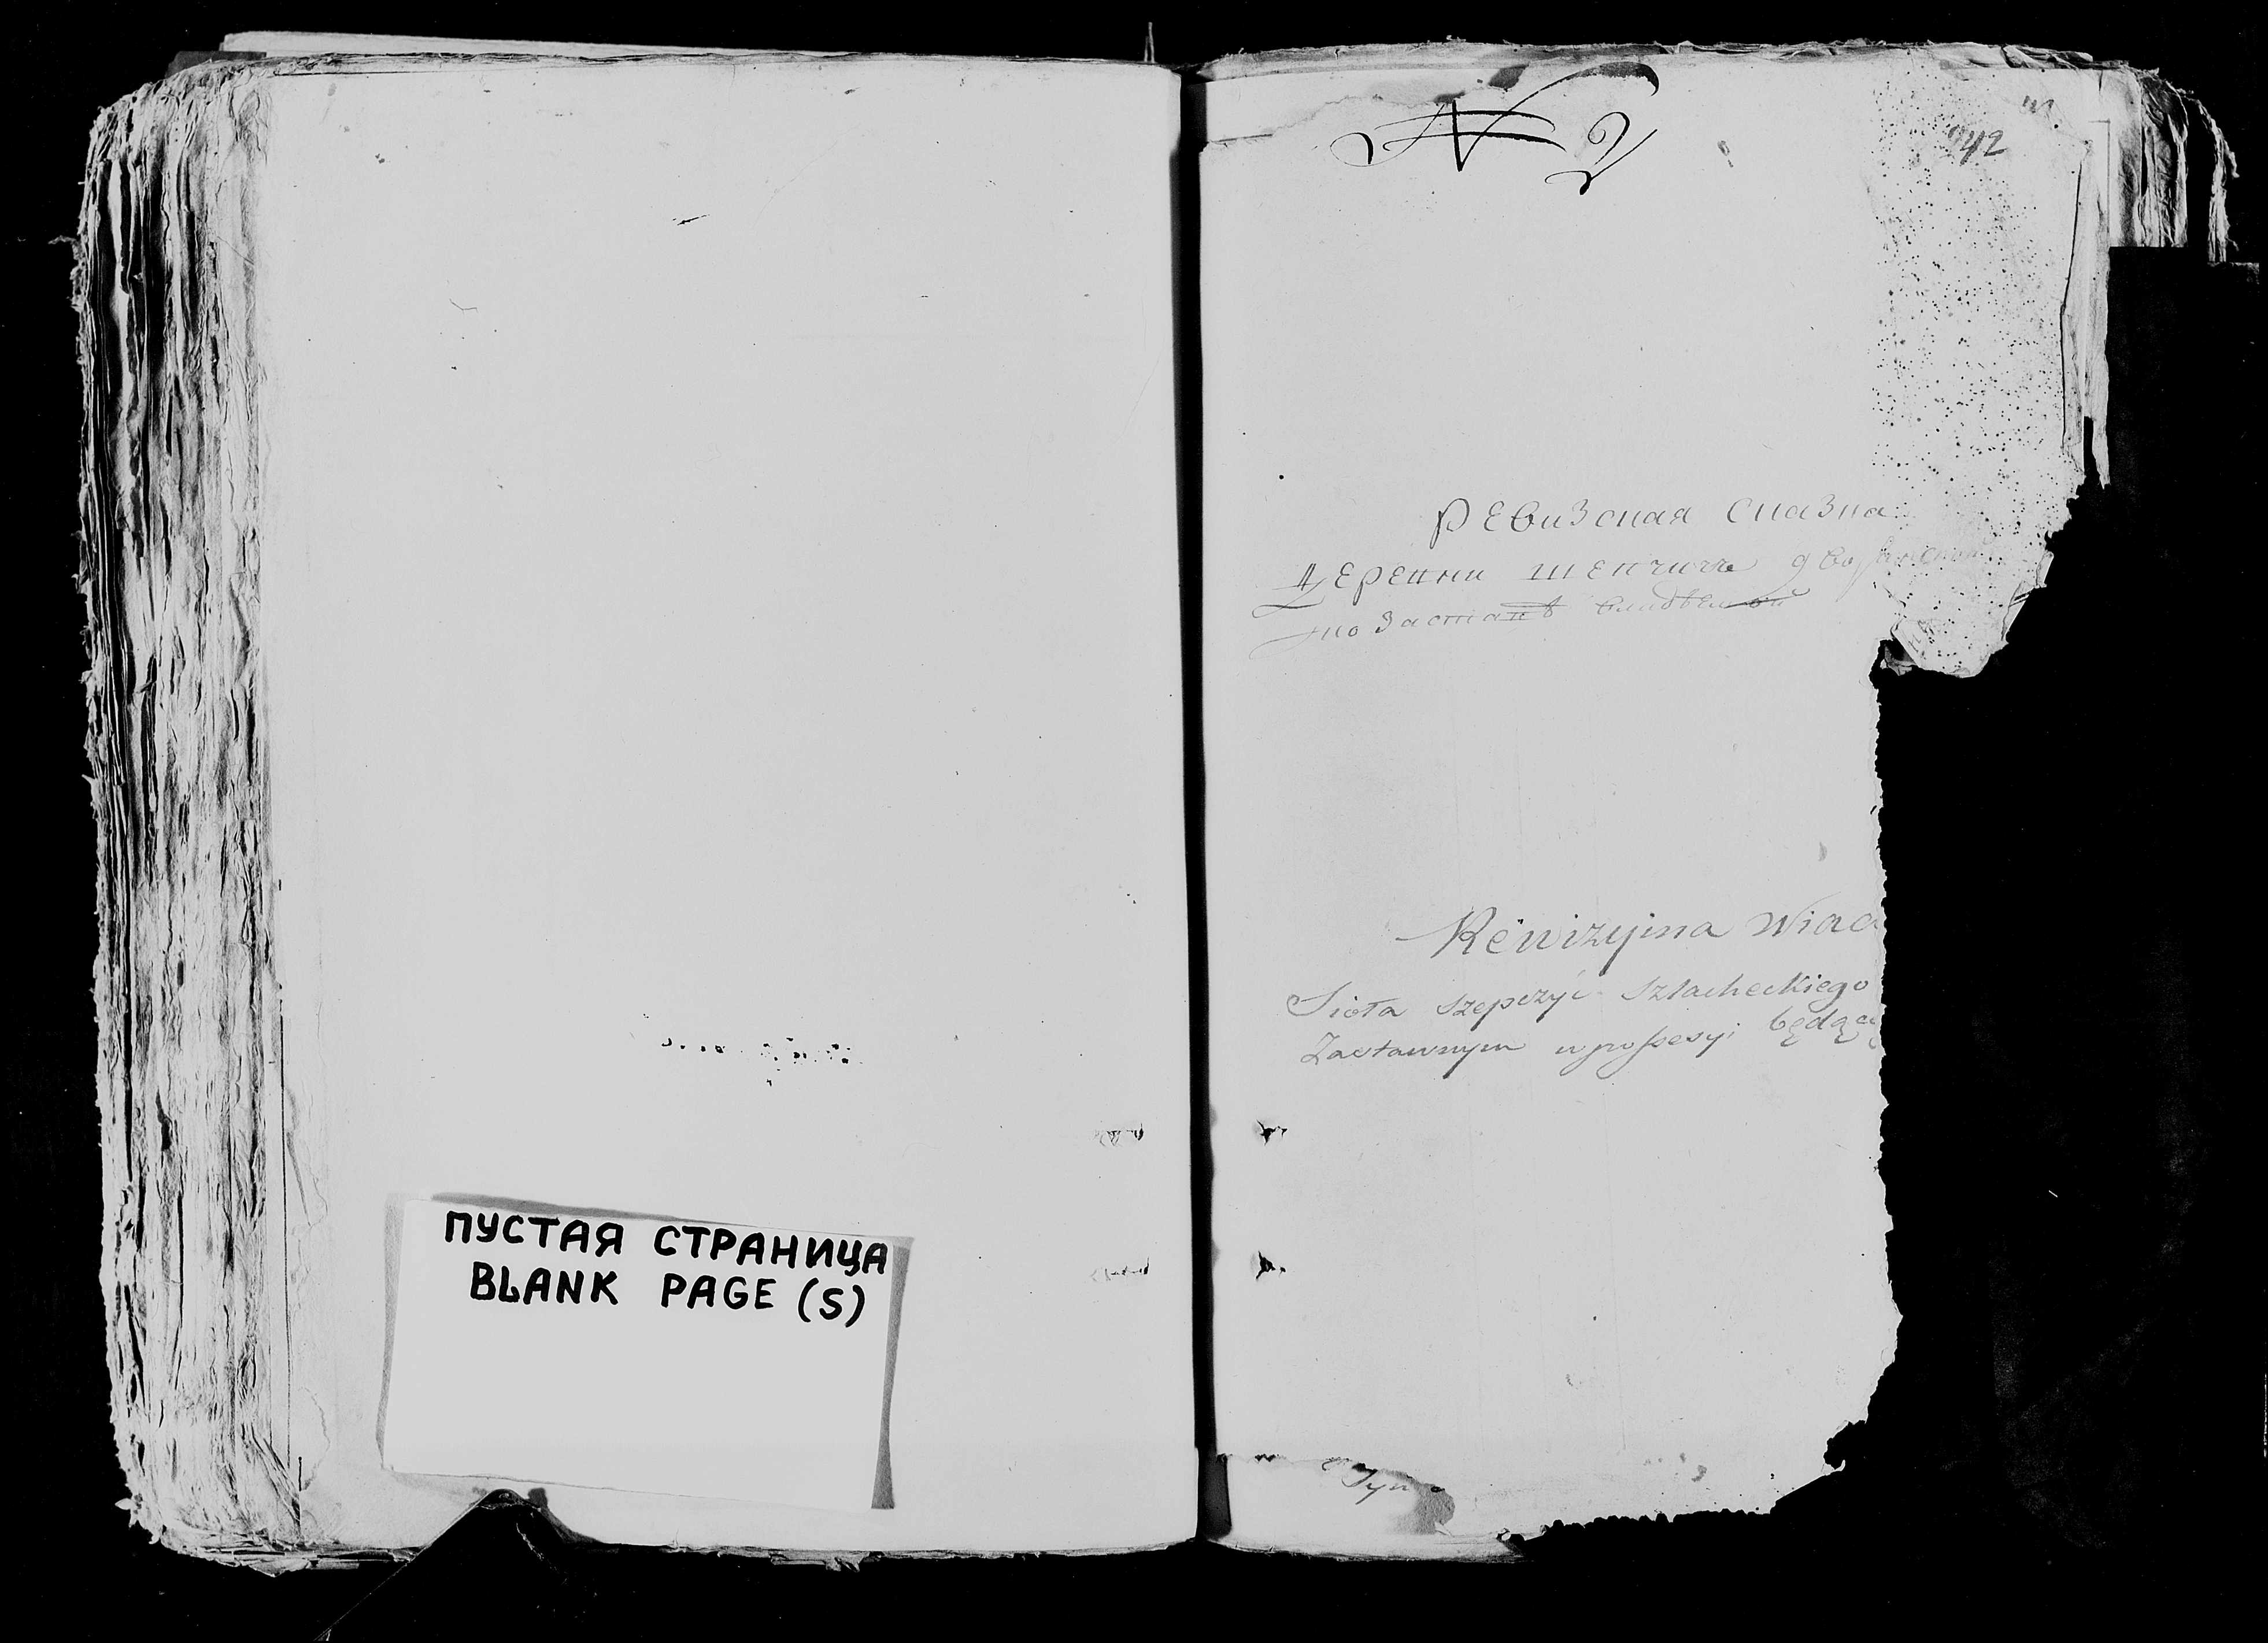 ПУСТАЯ СТРАНИЦА
BLANK PAGE (S)
42
Ревизская сказка
Деревни шепчичъ
по заставѣ
Rewizyjna Wiad
Sioła Szepczyć Szlacheckiego
Zastawnym w possesyi będąc